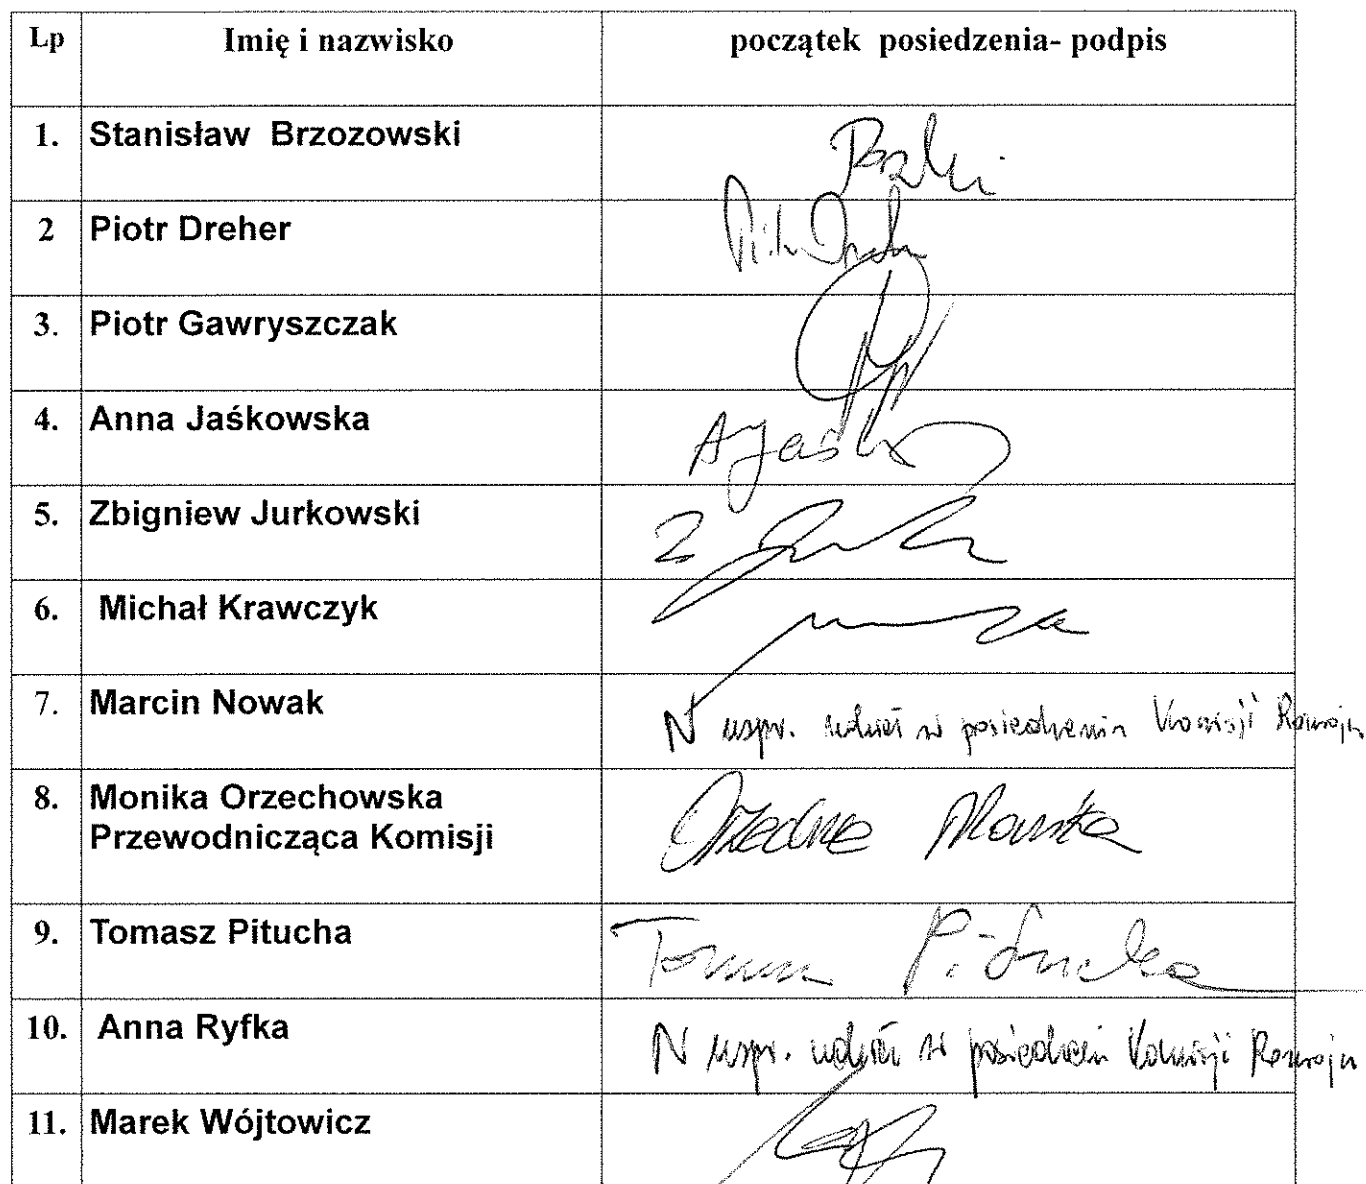 Lp Imię i nazwisko początek posiedzenia- podpis
1. Stanisław Brzozowski
2 Piotr Dreher
3. Piotr Gawryszczak
4. Anna Jaśkowska AJaśk
5. Zbigniew Jurkowski
6. Michał Krawczyk
7. Marcin Nowak N uspr. udział w posiedzeniu Komisji Rozwoju
8. Monika Orzechowska
Przewodnicząca Komisji
9. Tomasz Pitucha Tomasz Pitucha
10. Anna Ryfka N uspr. udział w posiedzeniu Komisji Rozwoju
11. Marek Wójtowicz